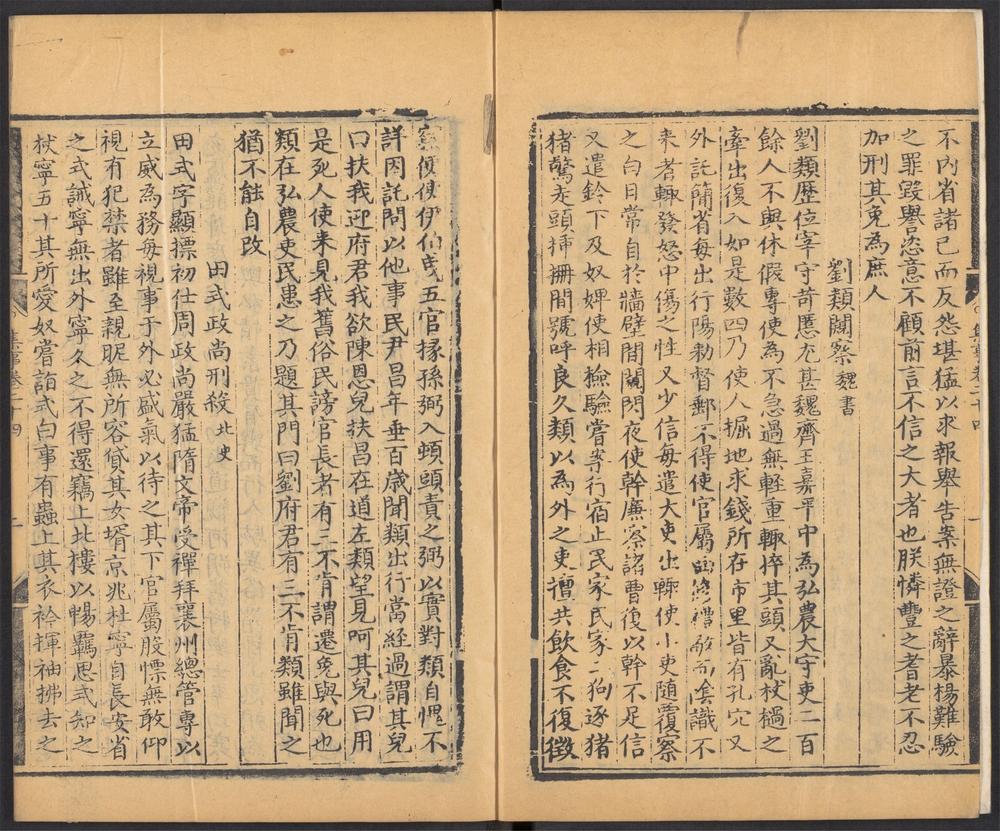 不內省諸己而反怨堪猛以求報舉告案無證之辭暴揚難驗
之罪毀譽恣意不顧前言不信之大者也朕憐豐之耆老不忍
加刑其免為庶人
劉類閣察魏書
劉類歷位宰守苛慝尤甚魏齊王嘉平中為弘農大守吏二百
餘人不與休假專使為不急過無輕重輒捽其頭又亂杖撾之
牽出復入如是數四乃使人掘地求錢所在市里皆有孔穴又
外託簡省每出行陽勑督郵不得使官屬曲修禮敬而陰識不
来者輒發怒中傷之性又少信每遣大吏出輒使小吏随覆察
之白日常自於牆壁間闚閃夜使幹廉察諸曹復以幹不足信
又遣鈴下及奴婢使相檢驗嘗案行宿止民家民家二狗逐猪
猪驚走頭揷柵間號呼良久類以為外之吏擅共飲食不復徴
察便使伊伯曳五官掾孫弼入頓頭責之弼以實對類自愧不
詳因託問以他事民尹昌年垂百歳聞類出行當經過謂其兒
曰扶我迎府君我欲陳恩兒扶昌在道左類望見呵其兒曰用
是死人使来見我舊俗民謗官長者有三不肯謂遷免與死也
類在弘農吏民患之乃題其門曰劉府君有三不肯類雖聞之
猶不能自改
田式政尚刑殺北史
田式字顯摽初仕周政尚嚴猛隋文帝受禪拜襄州總管專以
立威為務每視事于外必盛氣以待之其下官屬股慄無敢仰
視有犯禁者雖至親昵無所容貸其女壻京兆杜寧自長安省
之式誡寧無出外寧久之不得還竊上北樓以暢羈思式知之
杖寧五十其所愛奴嘗詣式白事有蟲上其衣衿揮袖拂去之